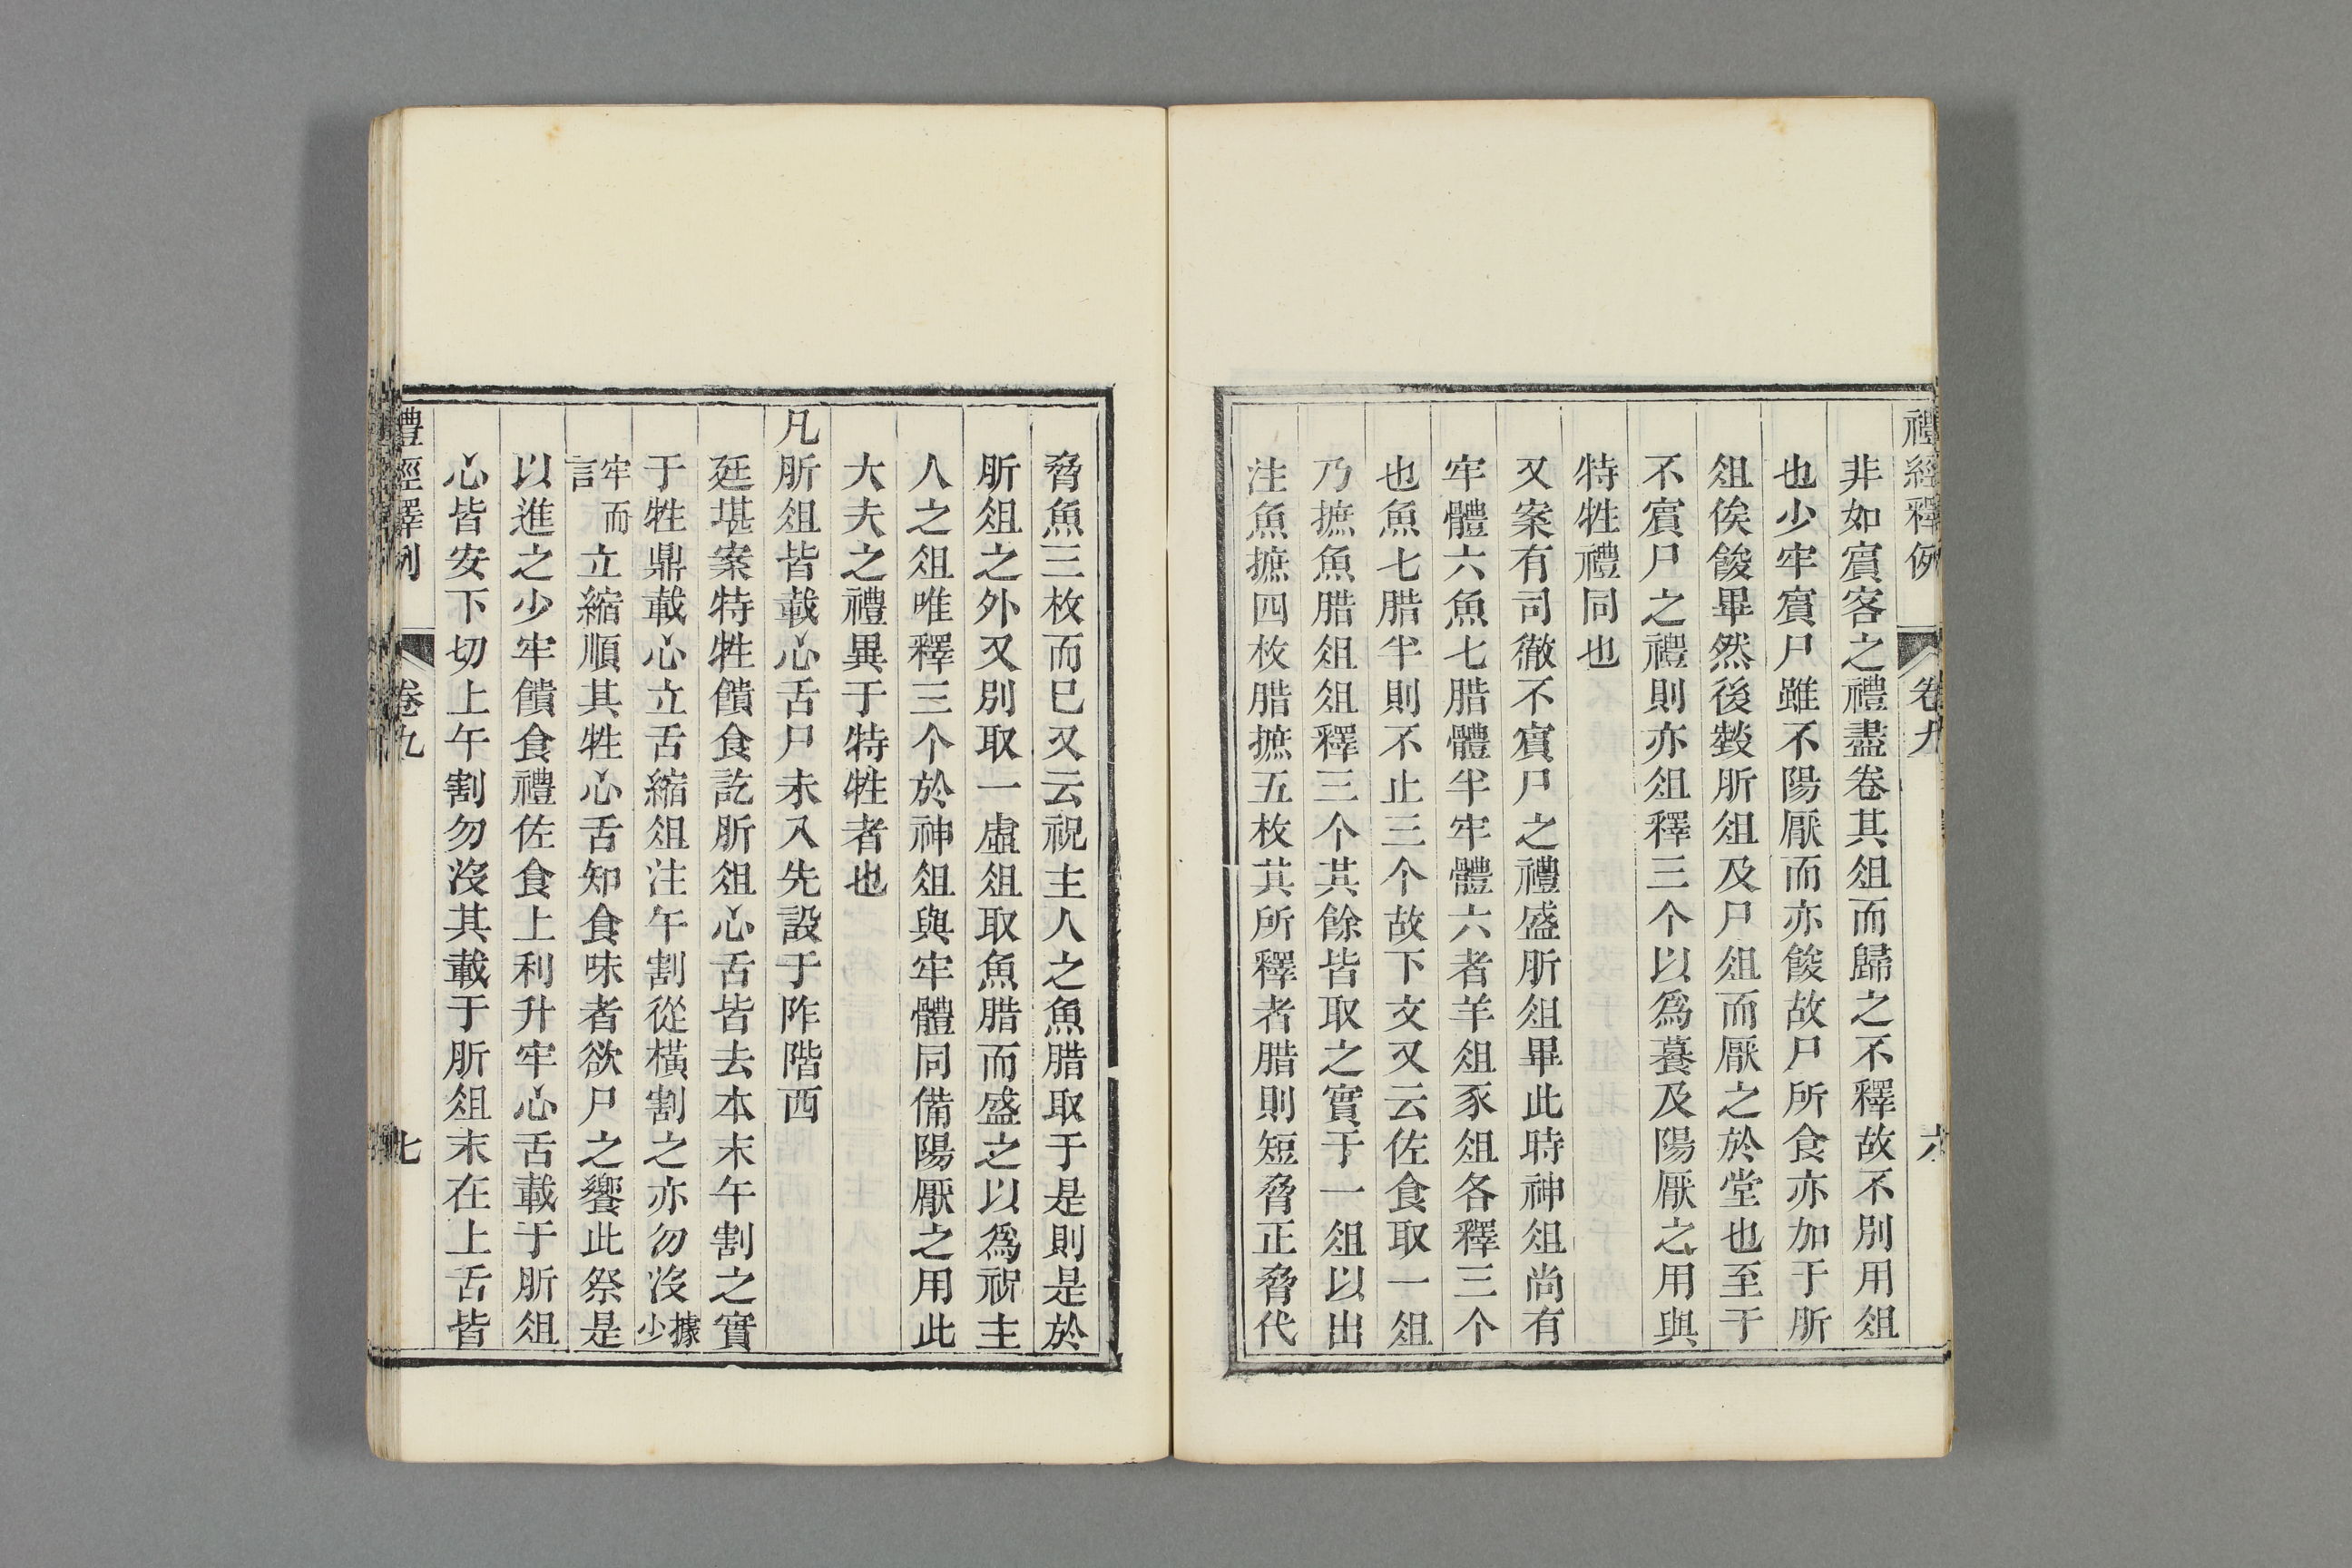 禮經釋例 卷九 六
非如賔客之禮盡卷其俎而歸之不釋故不別用俎
也少牢賔尸雖不陽厭而亦餕故尸所食亦加于肵
俎俟餕畢然後燅肵俎及尸俎而厭之於堂也至于
不賔尸之禮則亦俎釋三个以爲䉵及陽厭之用與
特牲禮同也
又案有司徹不賔尸之禮盛肵俎畢此時神俎尚有
牢體六魚七腊體半牢體六者羊俎豕俎各釋三个
也魚七腊半則不止三个故下文又云佐食取一俎
乃摭魚腊俎俎釋三个其餘皆取之實于一俎以出
注魚摭四枚腊摭五枚其所釋者腊則短脅正脅代
脅魚三枚而已又云祝主人之魚腊取于是則是於
肵俎之外又別取一虛俎取魚腊而盛之以爲祝主
人之俎唯釋三个於神俎與牢體同備陽厭之用此
大夫之禮異于特牲者也
凡肵俎皆載心舌尸未入先設于阼階西
廷堪案特牲饋食記肵俎心舌皆去本末午割之實
于牲鼎載心立舌縮俎注午割從橫割之亦勿沒據少
牢而言立縮順其牲心舌知食味者欲尸之饗此祭是
以進之少牢饋食禮佐食上利升牢心舌載于肵俎
心皆安下切上午割勿沒其載于肵俎末在上舌皆
禮經釋例 卷九 七